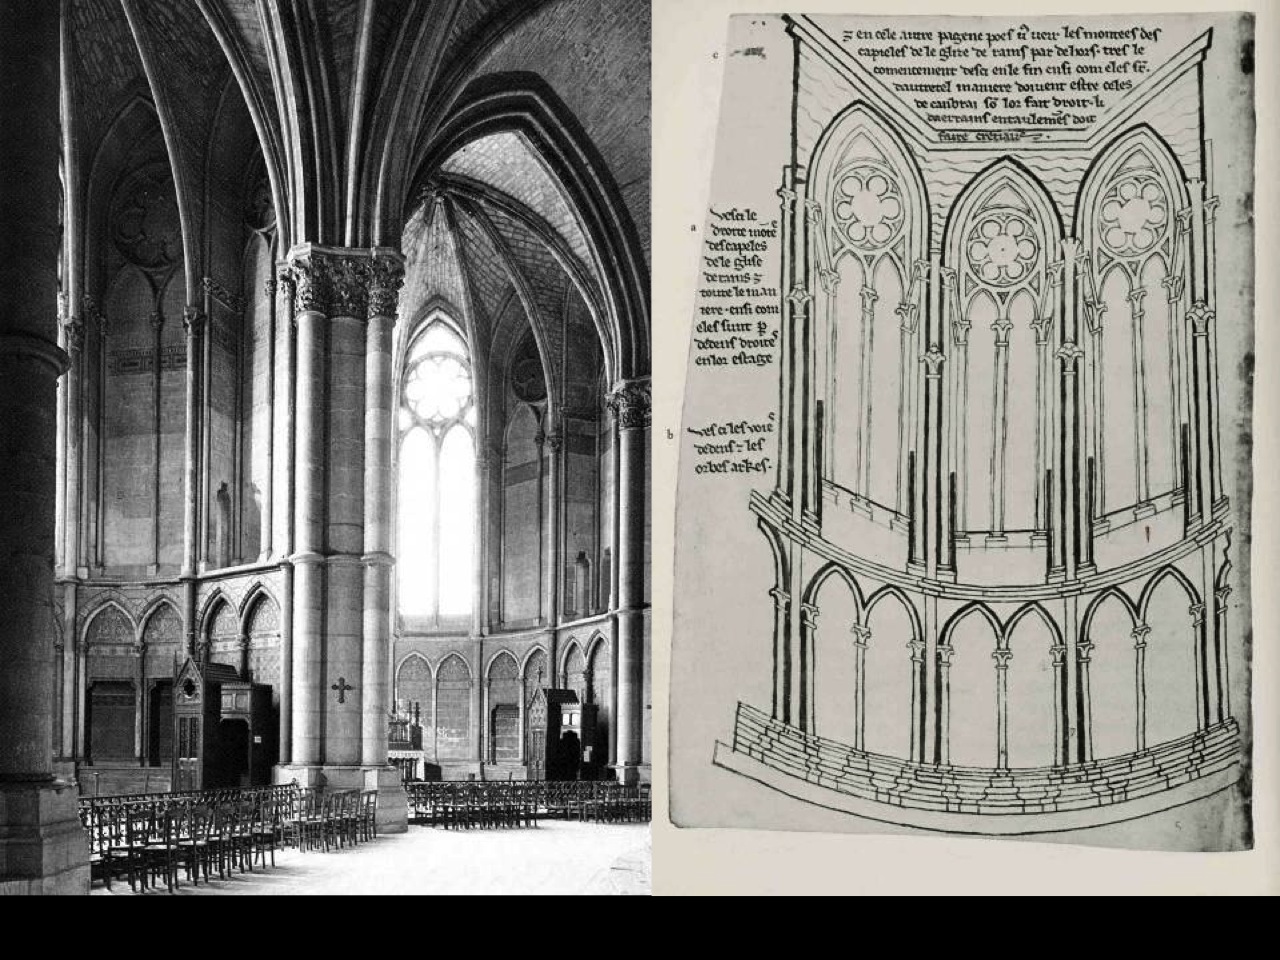 ⁊ en cele autre pagene poes vͦ ueir les montees des
capieles de le glize de rains par dehors. tres le
comencement desci en le fin ensi com eles sͬ.
dautretel maniere doiuent estre celes
de canbrai sͦ lor fait droit. li
daerrains entaulemēs doit
faire cretiaus.
c
a
Vesci le
droite mōtee
des capeles
de le glise
de rains ⁊
toute le man
iere. ensi com
eles sunt p̄
dedens droites
en lor estage
b
Vesci les voies
dedens ⁊ les
orbes arkes.